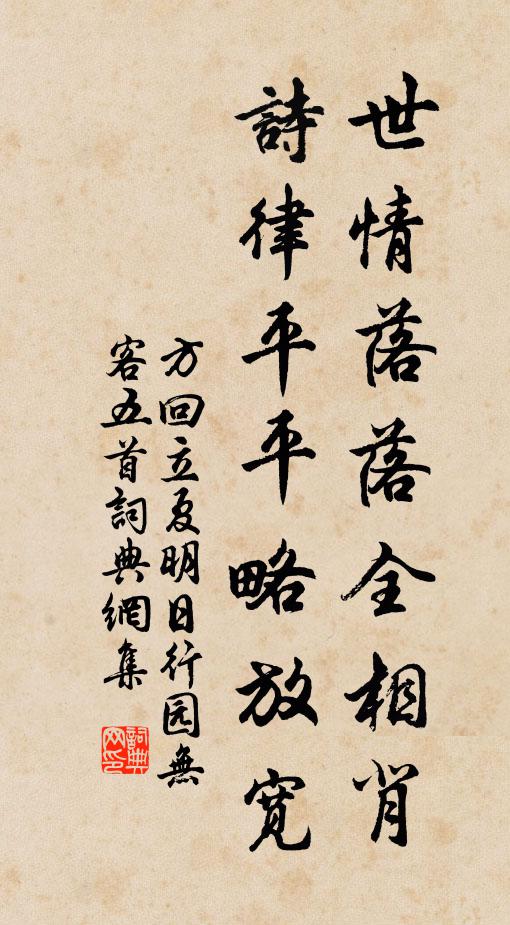 世情落落全相肖
詩律平平略放寬
方回立夏明日行园無
客五首詞典網集
詞典网印